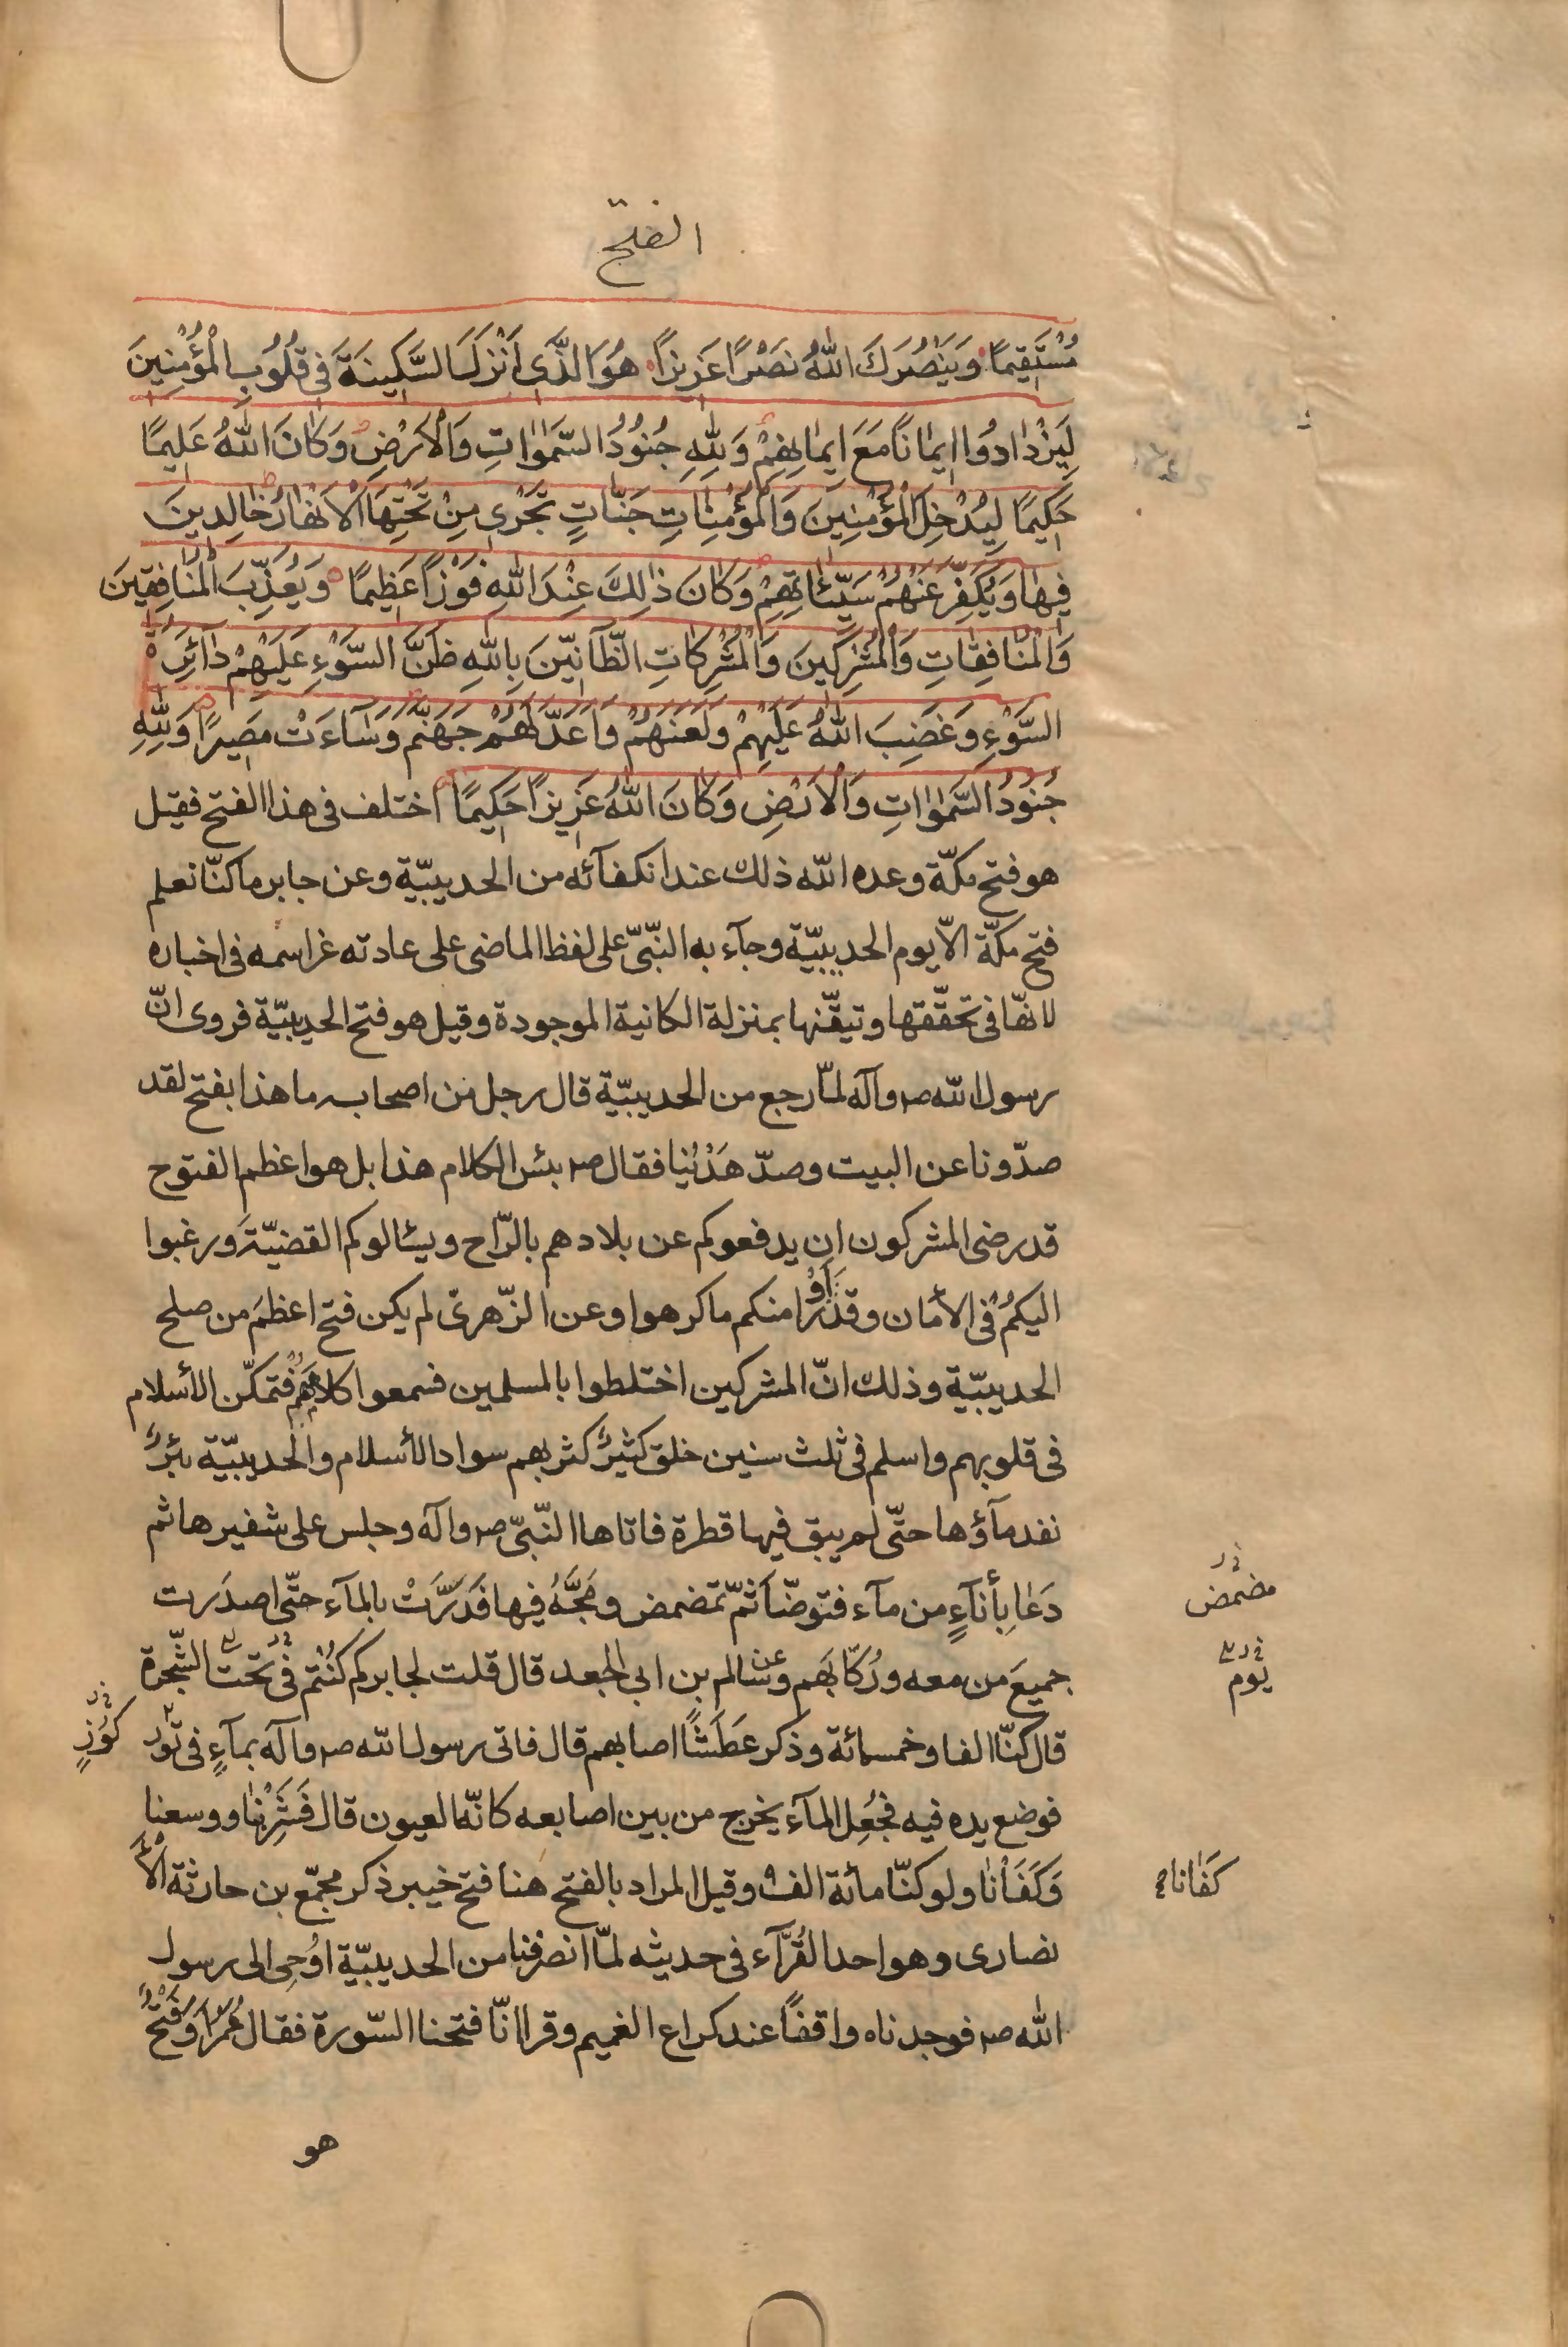 الفتح
مُسْتَقِيمًا وَيَنْصُرَكَ اللّٰهُ نَصْرًا عَزِيزًا هُوَ الَّذَّي اَنْزَلَ السَّكِينَةَ فِي قُلُوبِ الْمُؤْمِنِينَ
لِيَزْدٰادوُا اِيمٰانًا مَعَ اِيمٰانِهِمْ وَلِلّٰهِ جُنُودُ السَّمٰوٰاتِ وَالْاَرْضِ وَكٰانَ اللّٰهُ عَلِيمًا
حَكِيمًا لِيُدْخِلَ الْمُؤْمِنِينَ وَالْمُؤْمِنٰاتِ جَنّٰاتٍ تَجْرِي مِنْ تَحْتِهَا الْاَنْهٰارُ خٰالِدِينَ
فِيهٰا وَيُكَفِّرَ عَنْهُمْ سَيِّئٰاتِهِمْ وَكٰانَ ذٰلِكَ عِنْدَ اللّٰهِ فَوْزًا عَظِيمًا وَيُعَذِّبَ الْمُنٰافِقِينَ
وَالْمُنٰافِقٰاتِ وَالْمُشْرِكِينَ وَالْمُشْرِكٰاتِ الظّٰآنِّينَ بِاللّٰهِ ظَنَّ السَّوْءِ عَلَيْهِمْ دٰآئِرَةُ
السَّوْءِ وَغَضِبَ اللّٰهُ عَلَيْهِمْ وَلَعَنَهُمْ وَاَعَدَّ لَهُمْ جَهَنَّمَ وَسٰآءَتْ مَصِيرًا وَلِلّٰهِ
جُنُودُ السَّمٰوٰاتِ وَالْاَرْضِ وَكٰانَ اللّٰهُ عَزِيزًا حَكِيمًا اختلف فى هذا الفتح فقيل
هو فتح مكّة وعده اللّٰه ذلك عند انكفآئه من الحديبيّة وعن جابر ما كنّا نعلم
فتح مكّة الّا يوم الحديبيّة وجآء به النّبىّ على لفظ الماضى على عادته عزّ اسمه فى اخباره
لانّها فى تحقّقها وتيقّنها بمنزلة الكانية الموجودة وقيل هو فتح الحديبيّة فروى انّ
رسول اللّٰه ص وآله لمّا رجع من الحديبيّة قال رجل من اصحابه ما هذا بفتح لقد
صدّونا عن البيت وصدّ هَدْيُنا فقال ص بئس الكلام هذا بل هو اعظم الفتوح
قد رضى المشركون ان يدفعوكم عن بلادهم بالرّاح ويسٔالوكم القضيّة ورغبوا
اليكم فى الأمان وقد رَاَوْا منكم ما كرهوا وعن الزّهرىّ لم يكن فتح اعظمَ من صلح
الحديبيّة وذلك انّ المشركين اختلطوا بالمسلمين فسمعوا كلامهم فتمكّن الأسلام
فى قلوبهم واسلم فى ثلث سنين خلق كثيرٌ كثر بهم سواد الأسلام والحديبيّة بئرٌ
نفد مآؤها حتّى لم يبق فيها قطرة فاتاها النّبىّ ص وآله وجلس على شفيرها ثم
دَعٰا بِأنآءٍ من مآء فتوضّأ ثمّ تمضمض ومَجَّهُ فيها فَدَرَّتْ بالمآء حتّى اصدَرت
مضمض
جميعَ من معه ورُكّابَهم وعن سالم بن ابى الجعد قال قلت لجابر كم كُنْتم فى تحت الشّجرة
يوم
قال كنّا الفا وخمسمائة وذكر عَطَشًا اصابهم قال فاتى رسول اللّٰه ص وآله بمآءٍ فى تَوْر
كَوْزٍ
فوضع يده فيه فجُعِل المآء يخرج من بين اصابعه كانّه العيون قال فَشَرِبْنٰا ووسعنا
وَكَفَاْنٰا ولو كنّا مائة الف وقيل المراد بالفتح هنا فتح خيبر ذكر مجمّع بن حارثة الأ
كَفٰانا
نصارى وهو احد القُرّآء فى حديثه لمّا انصرفنا من الحديبيّة اوُحِى الى رسول
اللّٰه ص فوجدناه واقفًا عند كراع الغميم وقرا انّا فتحنا السّورة فقال عُمَر اَوَفَتْحٌ
هو